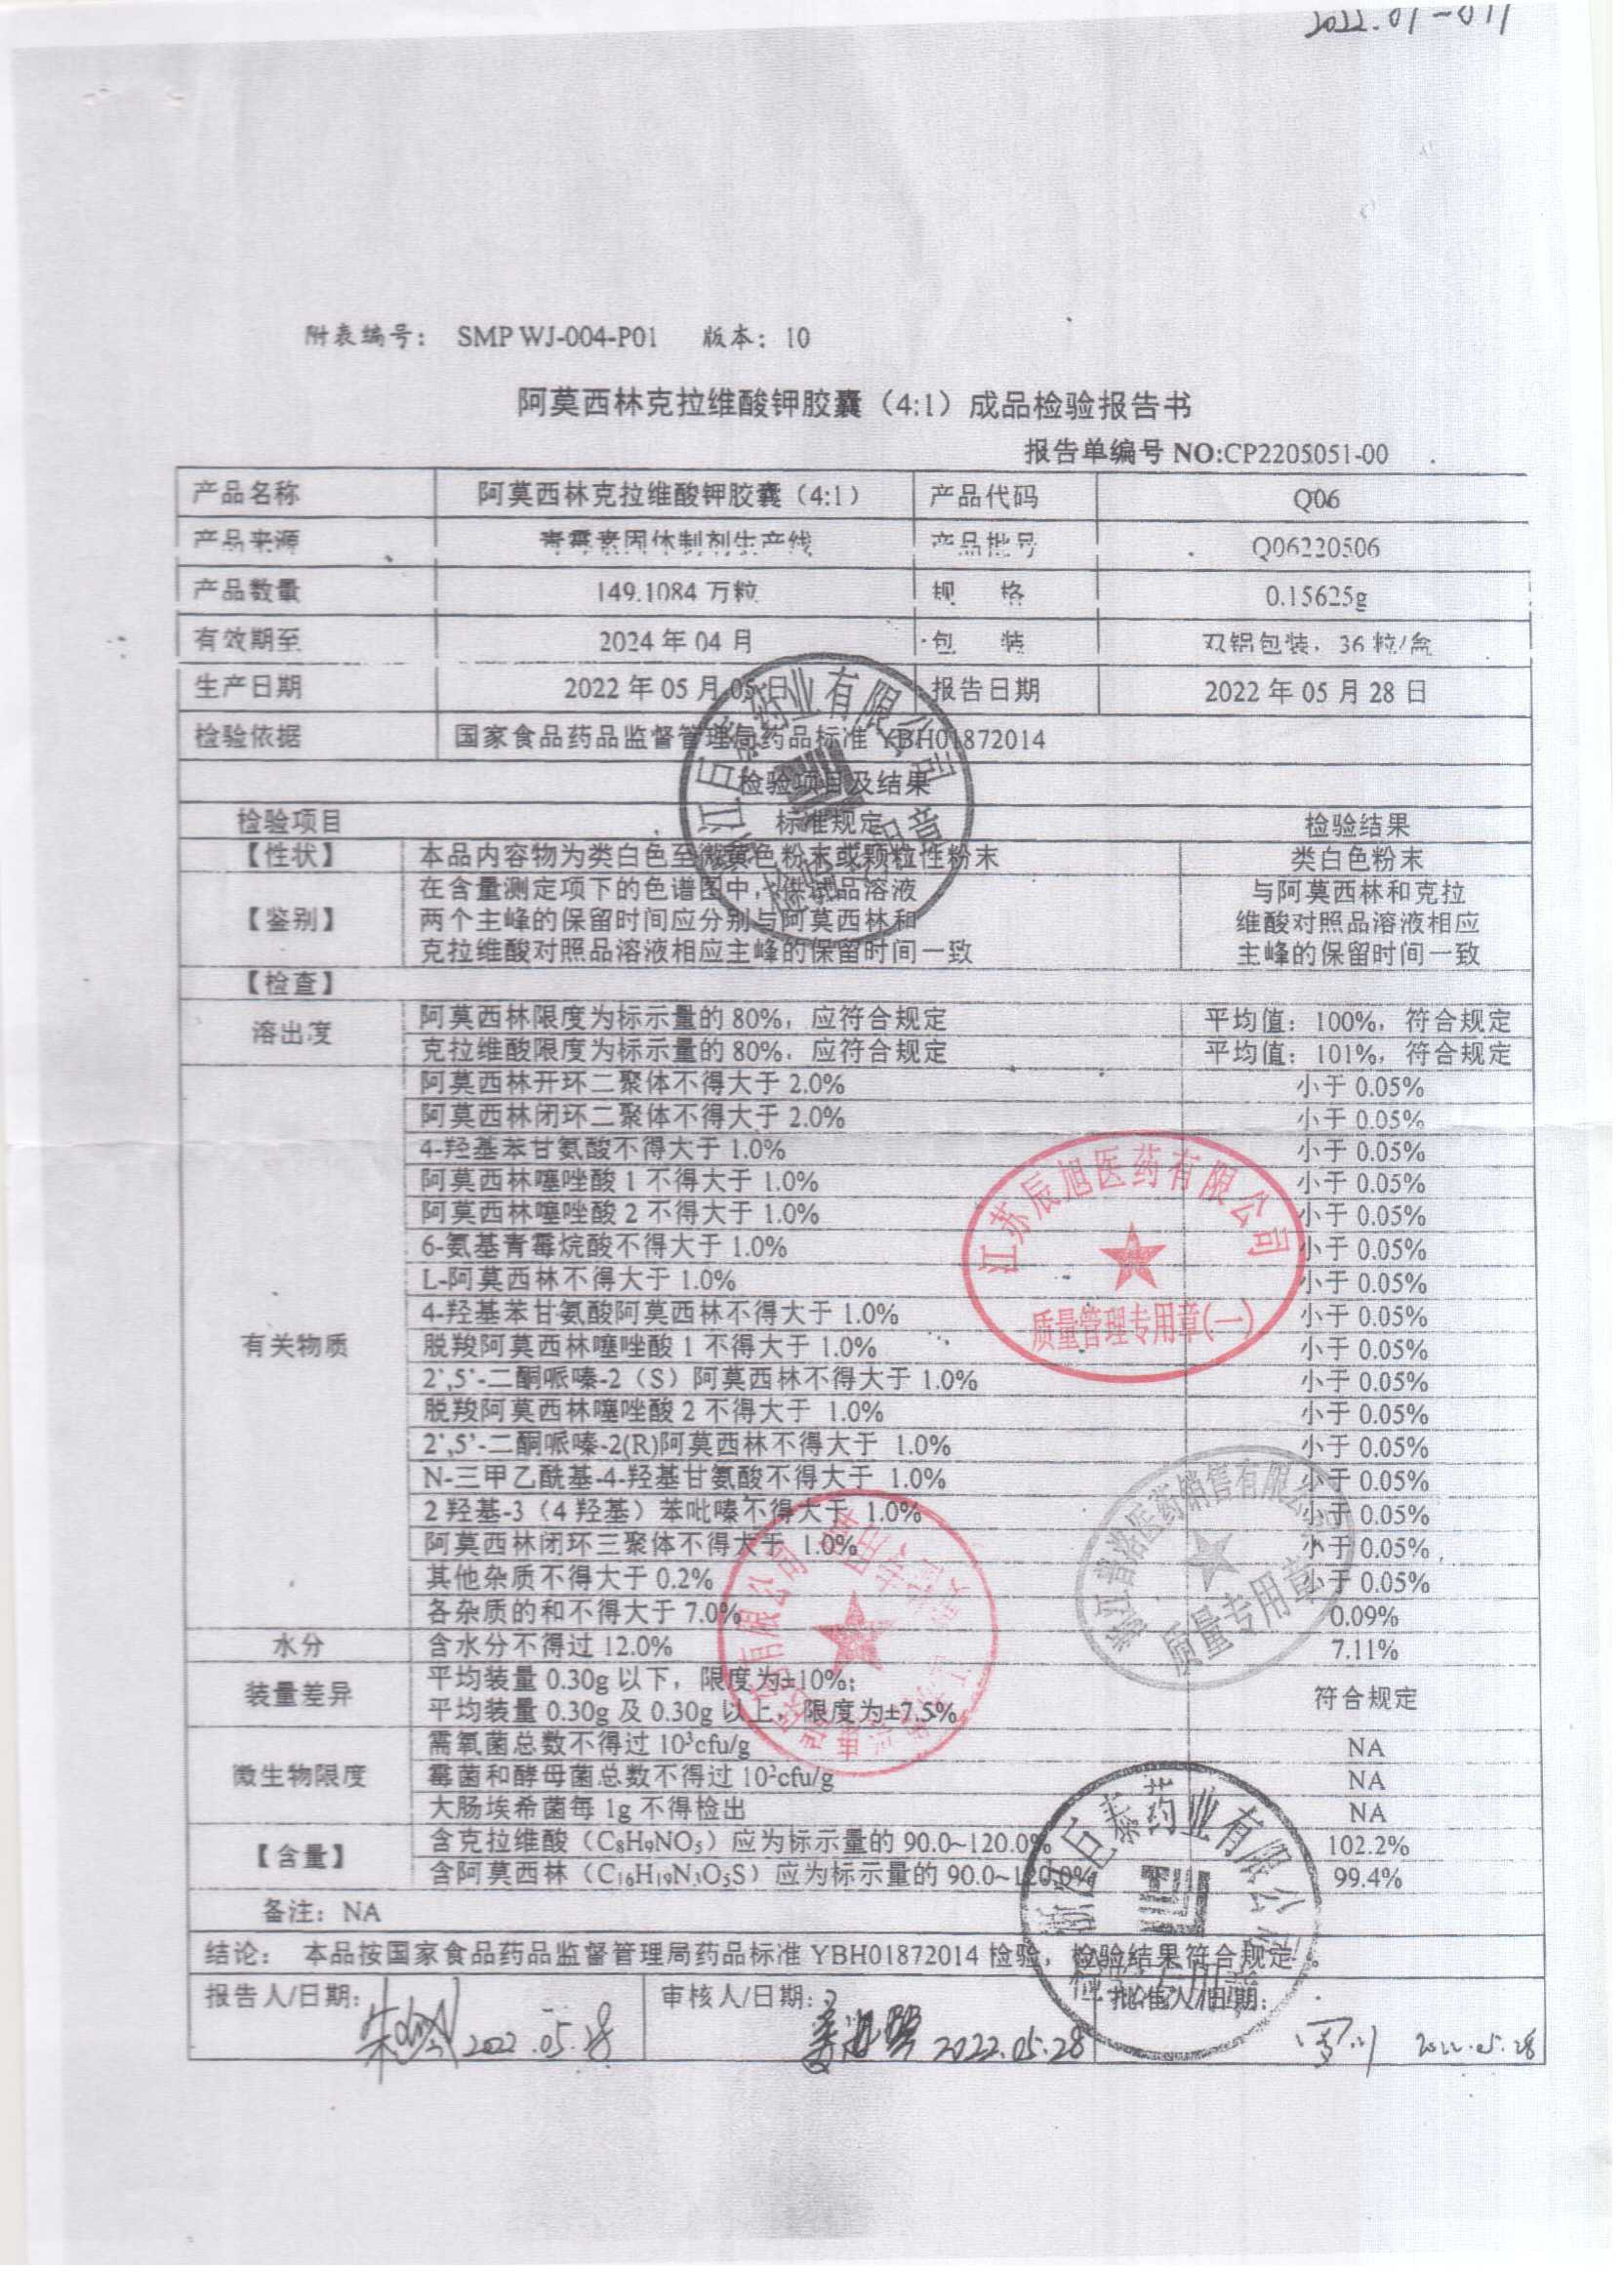 2022.01-011
附表编号： SMP WJ-004-P01 版本：10
阿莫西林克拉维酸钾胶囊（4:1）成品检验报告书
报告单编号 NO:CP2205051-00
产品名称 阿莫西林克拉维酸钾胶囊（4:1） 产品代码 Q06
产品来源 青霉素固体制剂生产线 产品批号 Q06220506
产品数量 149.1084 万粒 规 格 0.15625g
有效期至 2024 年 04 月 包 装 双铝包装，36 粒/盒
生产日期 2022 年 05 月 05 日 报告日期 2022 年 05 月 28 日
检验依据 国家食品药品监督管理局药品标准 YBH01872014
检验项目及结果
检验项目 标准规定 检验结果
【性状】 本品内容物为类白色至微黄色粉末或颗粒性粉末 类白色粉末
【鉴别】 在含量测定项下的色谱图中，供试品溶液 与阿莫西林和克拉
两个主峰的保留时间应分别与阿莫西林和 维酸对照品溶液相应
克拉维酸对照品溶液相应主峰的保留时间一致 主峰的保留时间一致
【检查】
溶出度 阿莫西林限度为标示量的 80%，应符合规定 平均值：100%，符合规定
克拉维酸限度为标示量的 80%，应符合规定 平均值：101%，符合规定
有关物质 阿莫西林开环二聚体不得大于 2.0% 小于 0.05%
阿莫西林闭环二聚体不得大于 2.0% 小于 0.05%
4-羟基苯甘氨酸不得大于 1.0% 小于 0.05%
阿莫西林噻唑酸 1 不得大于 1.0% 小于 0.05%
阿莫西林噻唑酸 2 不得大于 1.0% 小于 0.05%
6-氨基青霉烷酸不得大于 1.0% 小于 0.05%
L-阿莫西林不得大于 1.0% 小于 0.05%
4-羟基苯甘氨酸阿莫西林不得大于 1.0% 小于 0.05%
脱羧阿莫西林噻唑酸 1 不得大于 1.0% 小于 0.05%
2’,5’-二酮哌嗪-2（S）阿莫西林不得大于 1.0% 小于 0.05%
脱羧阿莫西林噻唑酸 2 不得大于 1.0% 小于 0.05%
2’,5’-二酮哌嗪-2(R)阿莫西林不得大于 1.0% 小于 0.05%
N-三甲乙酰基-4-羟基甘氨酸不得大于 1.0% 小于 0.05%
2 羟基-3（4 羟基）苯吡嗪不得大于 1.0% 小于 0.05%
阿莫西林闭环三聚体不得大于 1.0% 小于 0.05%
其他杂质不得大于 0.2% 小于 0.05%
各杂质的和不得大于 7.0% 0.09%
水分 含水分不得过 12.0% 7.11%
装量差异 平均装量 0.30g 以下，限度为±10%； 符合规定
平均装量 0.30g 及 0.30g 以上，限度为±7.5%
微生物限度 需氧菌总数不得过 10³cfu/g NA
霉菌和酵母菌总数不得过 10²cfu/g NA
大肠埃希菌每 1g 不得检出 NA
【含量】 含克拉维酸（C₈H₉NO₅）应为标示量的 90.0~120.0% 102.2%
含阿莫西林（C₁₆H₁₉N₃O₅S）应为标示量的 90.0~120.0% 99.4%
备注：NA
结论： 本品按国家食品药品监督管理局药品标准 YBH01872014 检验，检验结果符合规定。
报告人/日期： 2022.05.28 审核人/日期： 2022.05.28 批准人/日期： 2022.05.28
江苏辰旭医药有限公司
质量管理专用章(一)
质量专用章